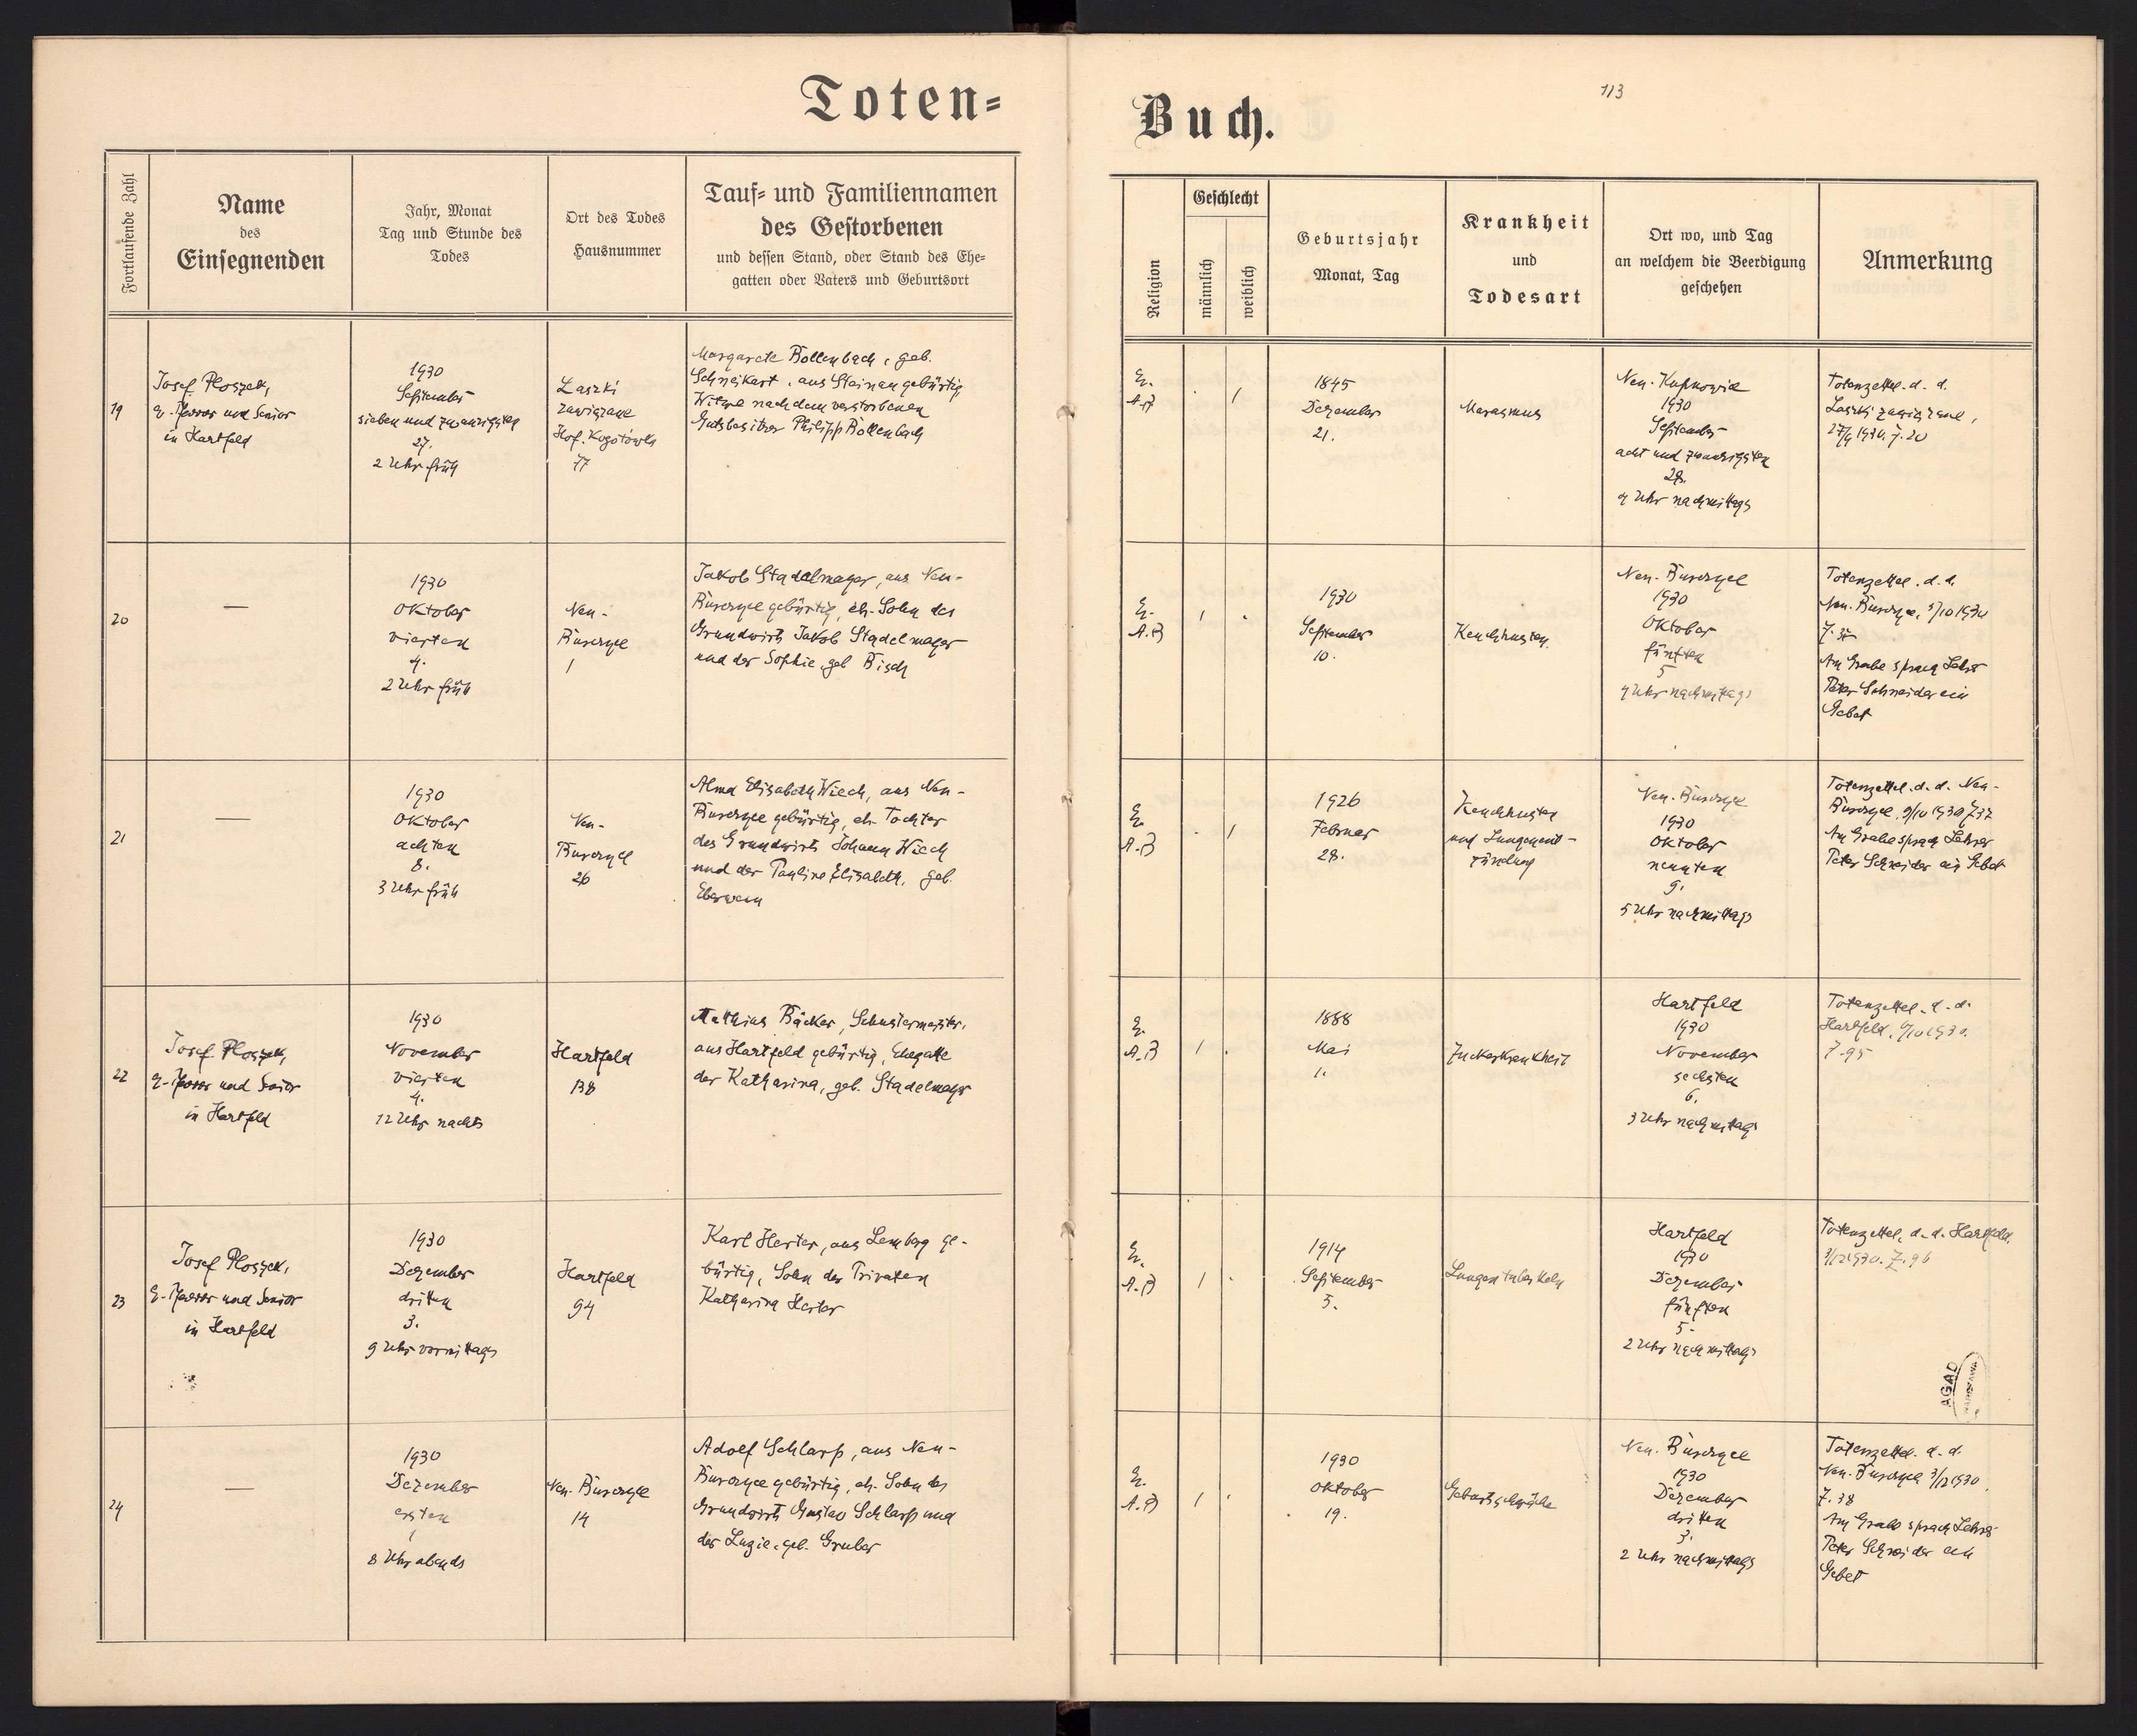 Toten=
Buch.
113
Fortlaufende Zahl
Name
des
Einsegnenden
Jahr, Monat
Tag und Stunde des
Todes
Ort des Todes
Hausnummer
Tauf= und Familiennamen
des Gestorbenen
und dessen Stand, oder Stand des Ehe=
gatten oder Vaters und Geburtsort
Religion
Geschlecht
männlich
weiblich
Geburtsjahr
Monat, Tag
Krankheit
und
Todesart
Ort wo, und Tag
an welchem die Beerdigung
geschehen
Anmerkung
19
Josef Ploszek,
ev. Pfarrer und Senior
in Hartfeld
1930
September
sieben und zwanzigsten
27.
2 Uhr früh
Laszki
zawiązane
Hof.
77
Margarete Bollenbach, geb.
Schneikart, aus Steinau gebürtig,
Witwe nach dem verstorbenen
Gutsbesitzer Philipp Bollenbach
Ev.
A.B
. 1
1845
Dezember
21.
Marasmus
Neu-Kupnowice
1930
September
acht und zwanzigsten
28.
4 Uhr nachmittags
Totenzettel d. d.
Laszki zawiązane,
27/9 1930. Z. 20
20
—
1930
Oktober
vierten
4.
2 Uhr früh
Neu-
Burczyce
1
Jakob Stadelmayer, aus Neu-
Burczyce gebürtig, eh. Sohn des
Grundwirts Jakob Stadelmayer
und der Sophie, geb. Bisch
Ev.
A.B
1 .
1930
September
10.
Keuchhusten
Neu-Burczyce
1930
Oktober
fünften
5
4 Uhr nachmittags
Totenzettel d. d.
Neu-Burczyce, 5/10 1930
Am Grabe sprach Lehrer
Peter Schneider ein
Gebet
21
—
1930
Oktober
achten
8.
3 Uhr früh
Neu-
Burczyce
26
Alma Elisabeth Wiech, aus Neu-
Burczyce gebürtig, eh. Tochter
des Grundwirts Johann Wiech
und der Pauline Elisabeth, geb.
Eberwein
Ev.
A.B
. 1
1926
Februar
28.
Keuchhusten
und Lungenent-
zündung
Neu-Burczyce
1930
Oktober
neunten
9.
5 Uhr nachmittags
Totenzettel d. d. Neu-
Burczyce, 9/10 1930 Z 37
Am Grabe sprach Lehrer
Peter Schneider ein Gebet
22
Josef Ploszek,
ev. Pfarrer und Senior
in Hartfeld
1930
November
vierten
4.
12 Uhr nachts
Hartfeld
138
Mathias Bäcker, Schustermeister,
aus Hartfeld gebürtig, Ehegatte
der Katharina, geb. Stadelmayer
Ev.
A.B
1 .
1888
Mai
1.
Zuckerkrankheit
Hartfeld
1930
November
sechsten
6.
3 Uhr nachmittags
Totenzettel d. d.
Hartfeld, 6/10 1930.
Z. 95
23
Josef Ploszek,
Ev. Pfarrer und Senior
in Hartfeld
1930
Dezember
dritten
3.
9 Uhr vormittags
Hartfeld
94
Karl Herter, aus Lemberg ge-
bürtig, Sohn der Privaten
Katharina Herter
Ev.
A.B
1 .
1914
September
5.
Lungentuberkeln
Hartfeld
1930
Dezember
fünften
5.
2 Uhr nachmittags
Totenzettel, d. d. Hartfeld,
3/12 1930. Z. 96
AGAD
WARSZAWA
24
—
1930
Dezember
ersten
1
8 Uhr abends
Neu-Burczyce
14
Adolf Schlarp, aus Neu-
Burczyce gebürtig, eh. Sohn des
Grundwirts Gustav Schlarp und
der Luzie, geb. Gruber
Ev.
A.B
1 .
1930
Oktober
19.
Geburtsschwäche
Neu-Burczyce
1930
Dezember
dritten
3.
2 Uhr nachmittags
Totenzettel d. d.
Neu-Burczyce 3/12 1930,
Z. 38
Am Grabe sprach Lehrer
Peter Schneider ein
Gebet